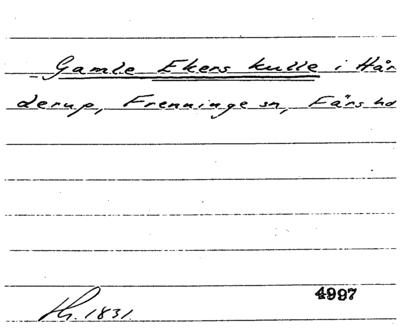 - Gamle Ekers kulle i Hår
derup, Frenninge sn, Färs hd
4997
Lh. 1831.